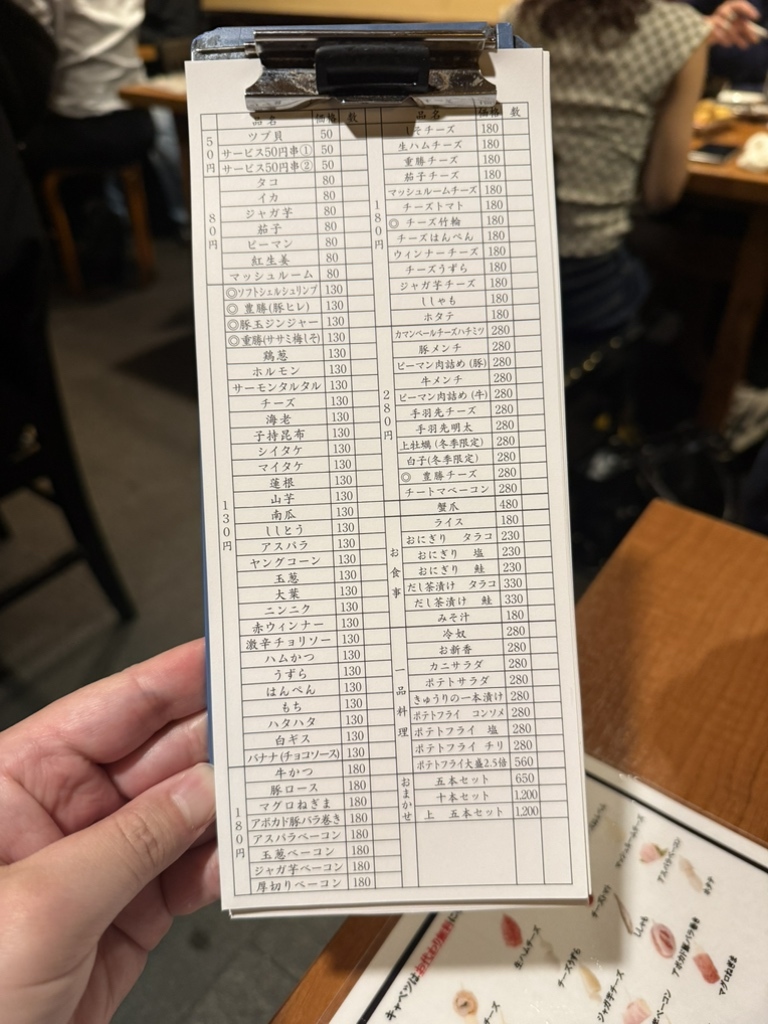 品名 価格 数
50円
ツブ貝 50
サービス50円串① 50
サービス50円串② 50
80円
タコ 80
イカ 80
ジャガ芋 80
茄子 80
ピーマン 80
紅生姜 80
マッシュルーム 80
130円
◎ソフトシェルシュリンプ 130
◎ 豊勝(豚ヒレ) 130
◎豚玉ジンジャー 130
◎重勝(ササミ梅しそ) 130
鶏葱 130
ホルモン 130
サーモンタルタル 130
チーズ 130
海老 130
子持昆布 130
シイタケ 130
マイタケ 130
蓮根 130
山芋 130
南瓜 130
ししとう 130
アスパラ 130
ヤングコーン 130
玉葱 130
大葉 130
ニンニク 130
赤ウィンナー 130
激辛チョリソー 130
ハムかつ 130
うずら 130
はんぺん 130
もち 130
ハタハタ 130
白ギス 130
バナナ(チョコソース) 130
180円
牛かつ 180
豚ロース 180
マグロねぎま 180
アボカド豚バラ巻き 180
アスパラベーコン 180
玉葱ベーコン 180
ジャガ芋ベーコン 180
厚切りベーコン 180
品名 価格 数
180円
しそチーズ 180
生ハムチーズ 180
重勝チーズ 180
茄子チーズ 180
マッシュルームチーズ 180
チーズトマト 180
◎ チーズ竹輪 180
チーズはんぺん 180
ウィンナーチーズ 180
チーズうずら 180
ジャガ芋チーズ 180
ししゃも 180
ホタテ 180
280円
カマンベールチーズハチミツ 280
豚メンチ 280
ピーマン肉詰め (豚) 280
牛メンチ 280
ピーマン肉詰め (牛) 280
手羽先チーズ 280
手羽先明太 280
上牡蠣 (冬季限定) 280
白子(冬季限定) 280
◎ 豊勝チーズ 280
チートマベーコン 280
蟹爪 480
お食事
ライス 180
おにぎり タラコ 230
おにぎり 塩 230
おにぎり 鮭 230
だし茶漬け タラコ 330
だし茶漬け 鮭 330
みそ汁 180
一品料理
冷奴 280
お新香 280
カニサラダ 280
ポテトサラダ 280
きゅうりの一本漬け 280
ポテトフライ コンソメ 280
ポテトフライ 塩 280
ポテトフライ チリ 280
ポテトフライ大盛2.5倍 560
おまかせ
五本セット 650
十本セット 1,200
上 五本セット 1,200
マッシュルームチーズ
アスパラベーコン
ホタテ
ししゃも
アボカド豚バラ巻き
マグロねぎま
生ハムチーズ
チーズうずら
ジャガ芋チーズ
キャベツはお代わり無料